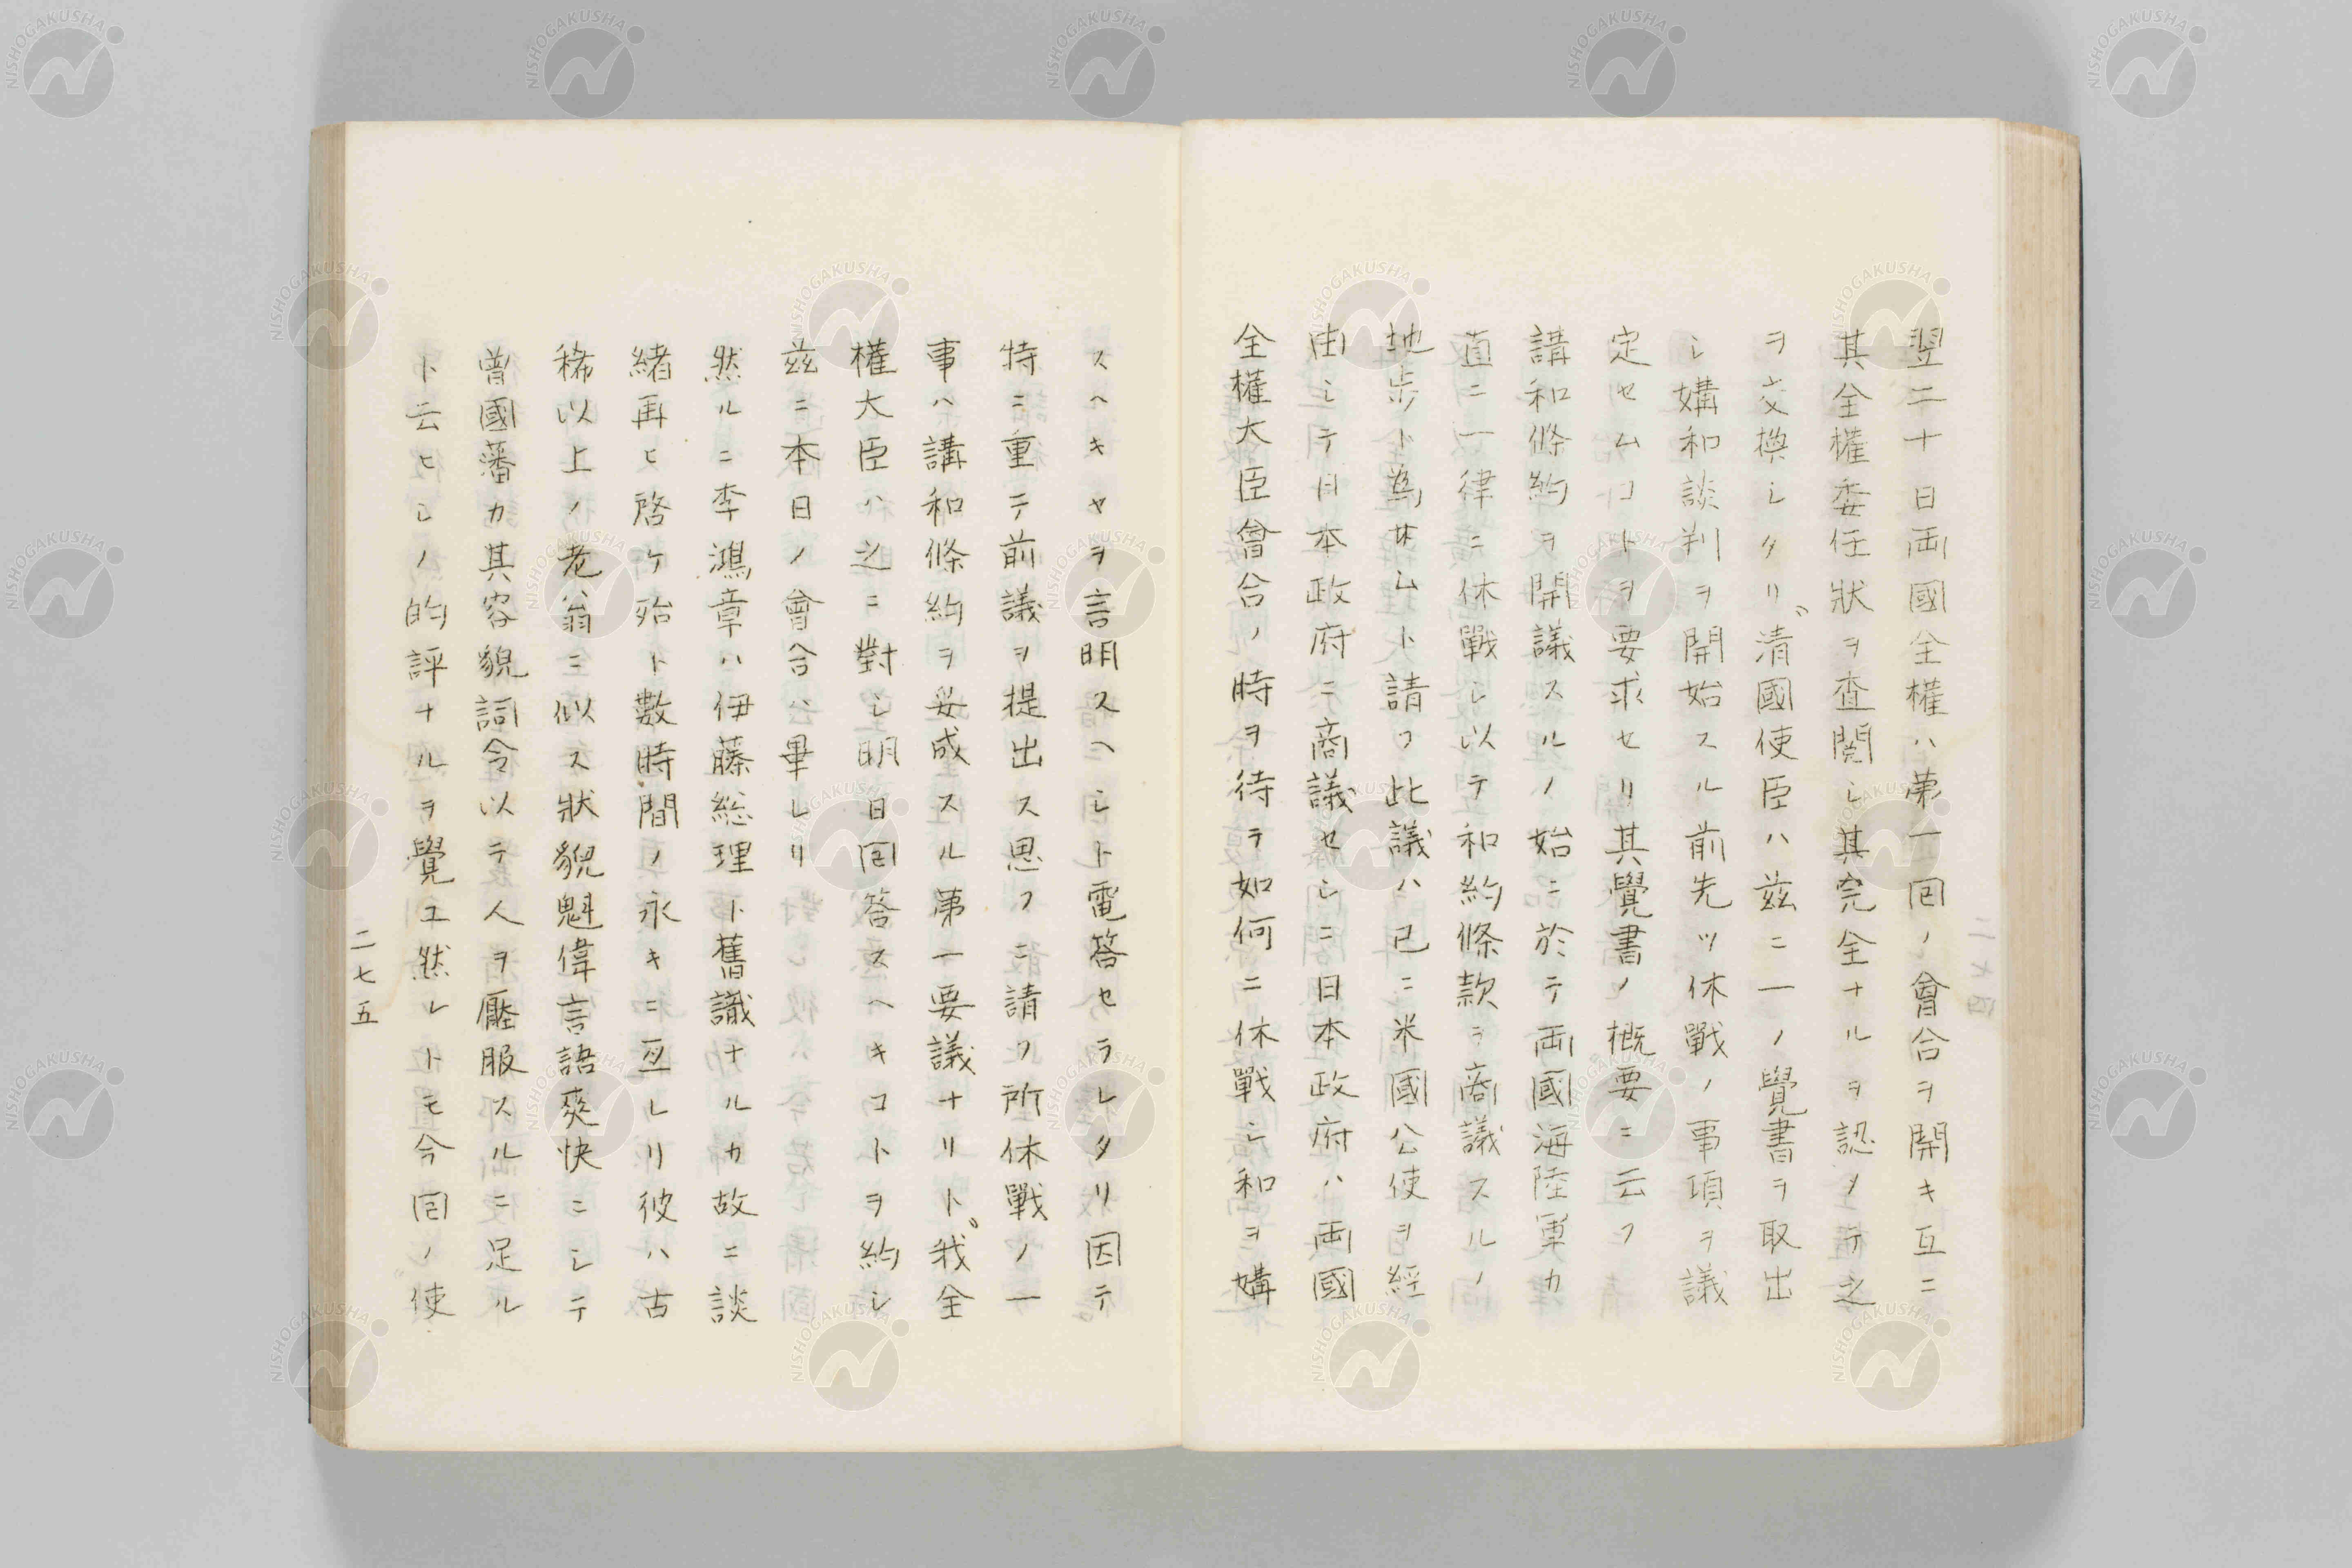 翌二十日両國全權ハ第一回ノ會合ヲ開キ互ニ
其全權委任狀ヲ査閲シ其完全ナルヲ認メテ之
ヲ交換シタリ〟清國使臣ハ玆ニ一ノ覺書ヲ取出
シ媾和談判ヲ開始スル前先ツ休戰ノ事項ヲ議
定セムコトヲ要求セリ其覺書ノ概要ニ云フ
講和條約ヲ開議スルノ始ニ於テ両國海陸軍カ
直ニ一律ニ休戰シ以テ和約條款ヲ商議スルノ
地歩ト為サムト請フ此議ハ已ニ米國公使ヲ經
由シテ日本政府ニ商議セシニ日本政府ハ両國
全權大臣會合ノ時ヲ待ラ如何ニ休戰シ和ヲ媾
スヘキヤヲ言明スヘシト電答セラレタリ因テ
特ニ重テ前議ヲ提出ス思フニ請フ所休戰ノ一
事ハ講和條約ヲ妥成スル第一要議ナリト〟我全
權大臣ハ之ニ對シ明日回答スヘキコトヲ約シ
玆ニ本日ノ會合ハ畢レリ
然ルニ李鴻章ハ伊藤総理ト舊識ナルカ故ニ談
緒再ヒ啓ケ殆ト數時間ノ永キニ亙レリ彼ハ古
稀以上ノ老翁ニ似ス狀貌魁偉言語爽快ニシテ
曽國藩カ其容貌詞令以テ人ヲ壓服スルニ足ル
ト云ヒシノ的評ナルヲ覺エ然レトモ今回ノ使
二七五
NISHOGAKUSHA